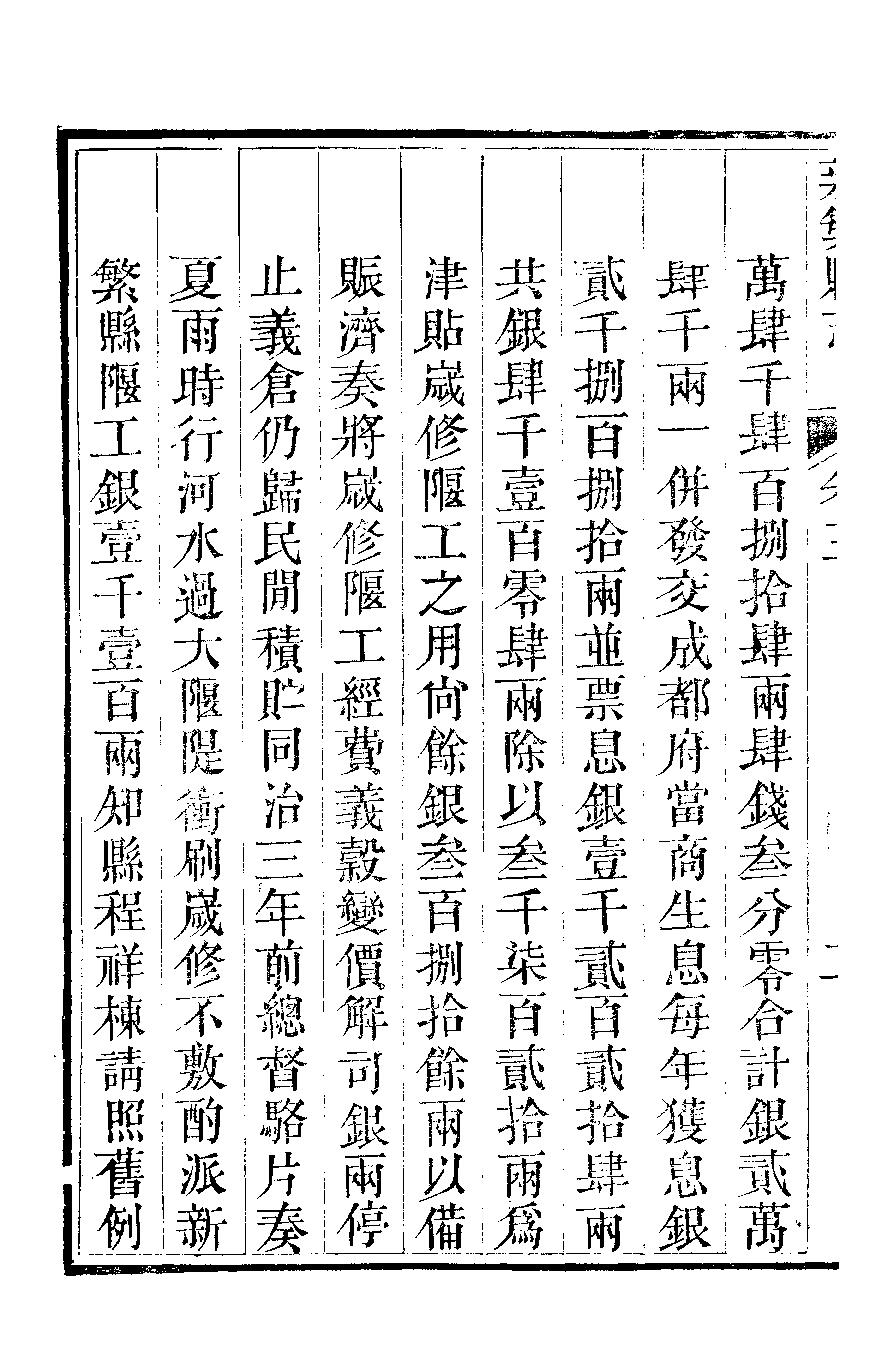 萬肆千肆百捌拾肆兩肆錢叁分零合計銀貳萬
肆千兩一併發交成都府當商生息每年獲息銀
貳千捌百捌拾兩並票息銀壹千貳百貳拾肆兩
共銀肆千壹百零肆兩除以叁千柒百貳拾兩爲
津貼嵗修堰工之用尙餘銀叁百捌拾餘兩以備
賑濟奏將嵗修堰工經費義穀變價解司銀兩停
止義倉仍歸民間積貯同治三年前總督駱片奏
夏雨時行河水過大堰隄衝刷嵗修不敷酌派新
繁縣堰工銀壹千壹百兩知縣程祥棟請照舊例